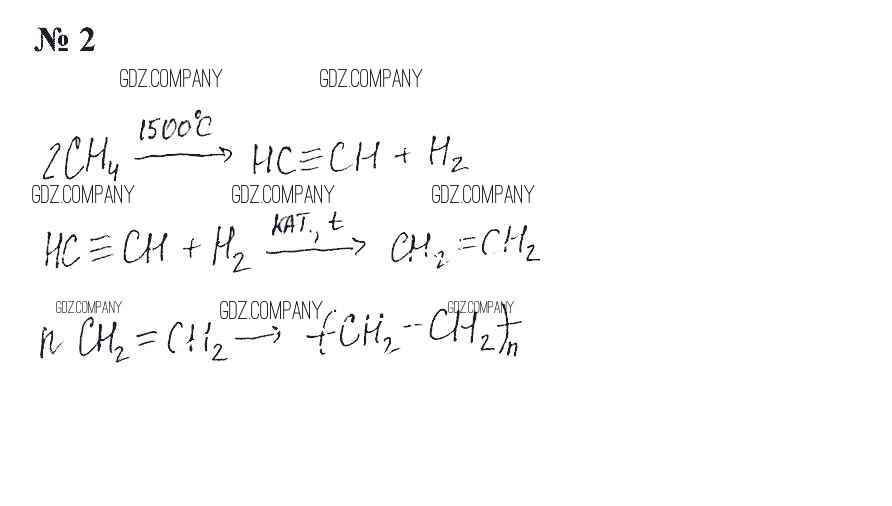 № 2
GDZ.COMPANY GDZ.COMPANY
2CH₄ 1500°C → HC≡CH + H₂
GDZ.COMPANY GDZ.COMPANY GDZ.COMPANY
HC≡CH + H₂ КАТ., t → CH₂=CH₂
GDZ.COMPANY GDZ.COMPANY GDZ.COMPANY
n CH₂=CH₂ → (CH₂–CH₂)n